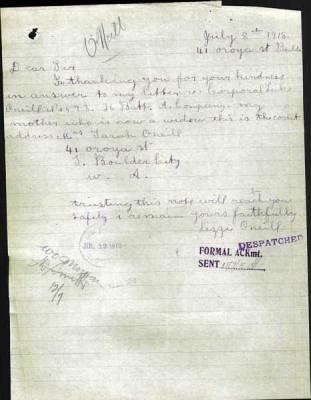 O'Neill
July 8th 1918
41 oroya st Boulder
Dear Sir
In thanking you for your kindness
in answer to my letter re Corporal Luke
Oneill A Company my
mother who is now a widow this is the correct
address Mrs Sarah Oneill
41 oroya st
S. Boulder City
W. A.
trusting this note will reach you
safely i remain yours faithfully
Lizzie Oneill
DESPATCHED
FORMAL ACKmt.
SENT